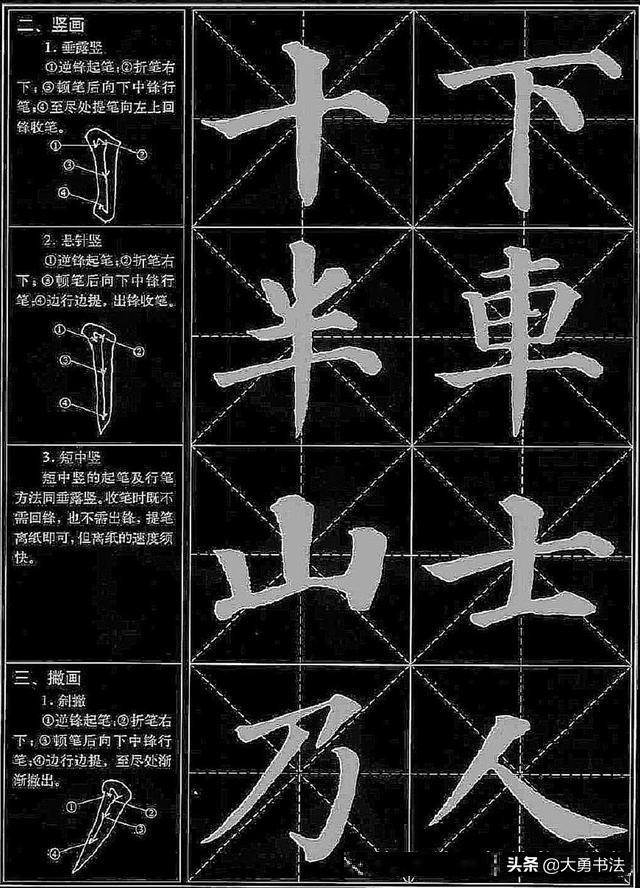 二、竖画
1. 垂露竖
①逆锋起笔;②折笔右
下;③顿笔后向下中锋行
笔;④至尽处提笔向左上回
锋收笔。
①
②
③
④
十下
2. 悬针竖
①逆锋起笔;②折笔右
下;③顿笔后向下中锋行
笔;④边行边提,出锋收笔。
①
②
③
④
半車
3. 短中竖
短中竖的起笔及行笔
方法同垂露竖。收笔时既不
需回锋,也不需出锋,提笔
离纸即可,但离纸的速度须
快。
山士
三、撇画
1. 斜撇
①逆锋起笔;②折笔右
下;③顿笔后向下中锋行
笔;④边行边提,至尽处渐
渐撇出。
①
②
③
④
乃人
头条@大勇书法